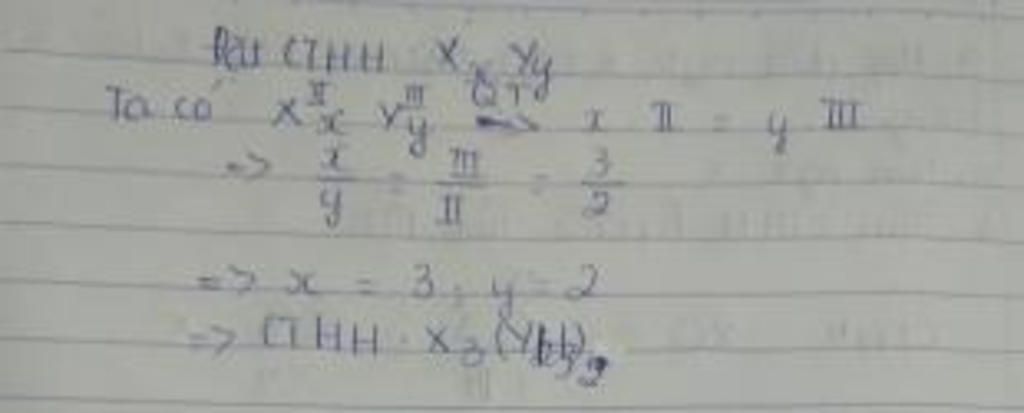 CTHH: XₓYy
Ta có X^II_x Y^III_y QT→ x . II = y . III
=> x/y = III/II = 3/2
=> x = 3; y = 2
=> CTHH: X₃(Y)₂